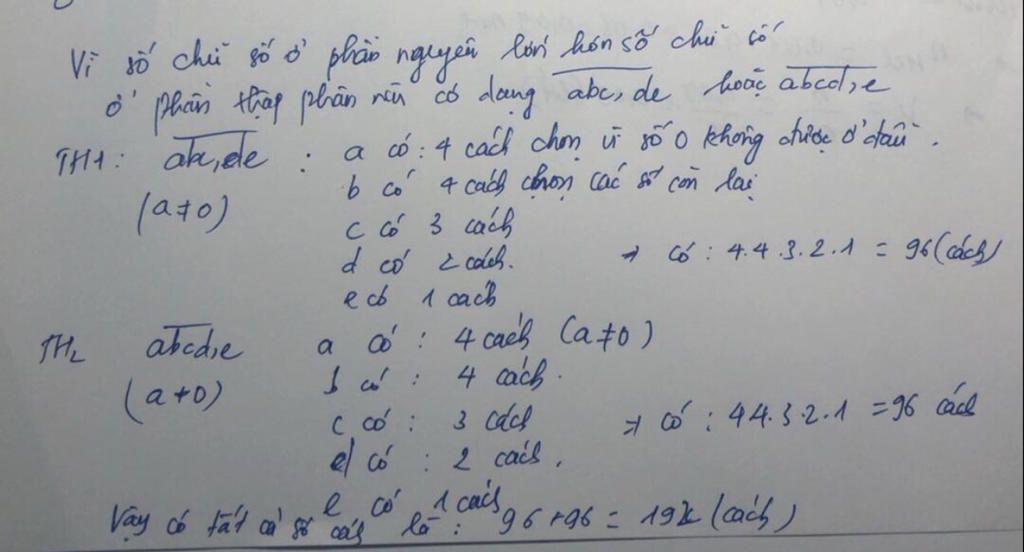 Vì số chữ số ở phần nguyên lớn hơn số chữ số
ở phần thập phân nên có dạng abc,de hoặc abcd,e
TH1: abc,de : a có : 4 cách chọn vì số 0 không được ở đầu.
(a≠0) b có 4 cách chọn các số còn lại
c có 3 cách
d có 2 cách. → có : 4.4.3.2.1 = 96 (cách)
e có 1 cách
TH2 abcd,e a có : 4 cách (a≠0)
(a≠0) b có : 4 cách.
c có : 3 cách → có : 44.3.2.1 = 96 cách
d có : 2 cách.
e có 1 cách
Vậy có tất cả số cách là : 96+96 = 192 (cách)